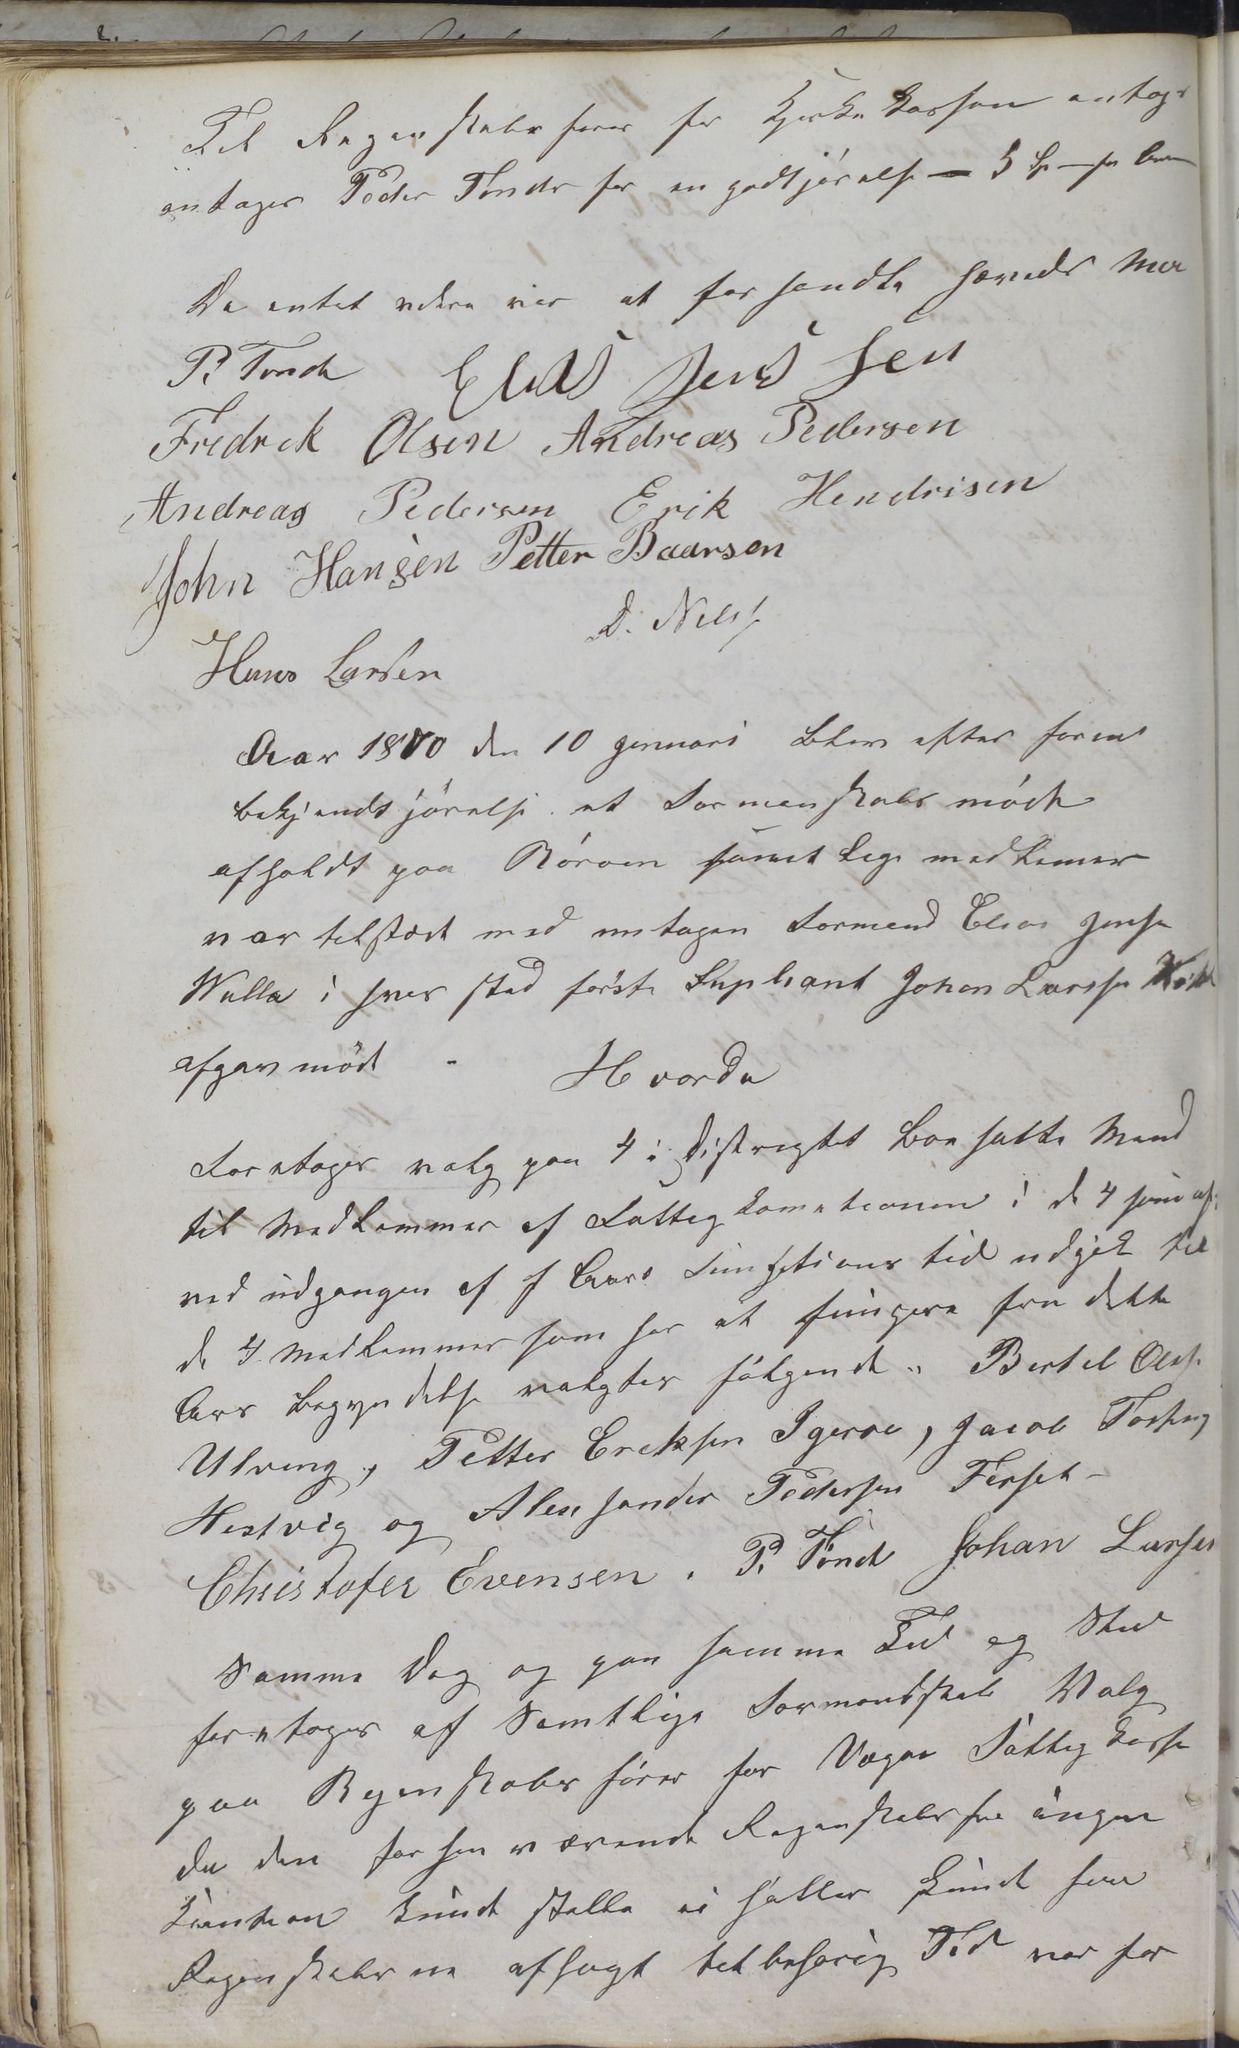 Til Regenskabs förer for Kjerke kassen antogs
antages Peder Tönde for en godtjörelse 5 Sp
Da entet videre var at forhandle hævedes
P. Tönde Elias Jenssen
Fredrek Olsen Andreas Pedersen
Andreas Pedersen Erik Hendrisen
John Hansen Petter Baarsen
D. Nilss
Hans Larsen
Aar 1870 den 10 januari blev efter foreno
bekjendtjörelse et Formenskabs möde
afholdt paa Röröen samtlige medlemer
var telstæde med untagen Formend Elias Jense
Walla i hvis sted förste Supleant Johan Larssen
afgav möde - Hvorda
Foretoges valg paa 4 i Districtet Boesatte Mend
til Medlemmer af Fattigkometionen i de 4 som
ved udgangen af f Aars Funktions tid udgik til
de 4 Medlemmer som har at fungere fra dette
Aars Begyndelse valgtes fölgende " Bertel Olsse
Ulveng, Petter Ereksen Igeröe, Jacob
Hestvig og Alexsander Pedersen Ferset -
Christofer Evensen. P. Tönde Johan Larsen
Samme Dag og paa samme Tid og Sted
foretoges af Samtlige Formandskab Valg
paa Regenskabs förer for Vegøe Fattig kasse
da den forhen værende Regenskabsför ingen
Kaution kunde stelle ei heller kunde
Regenskaberne aflagt tilbehörig Tid var for